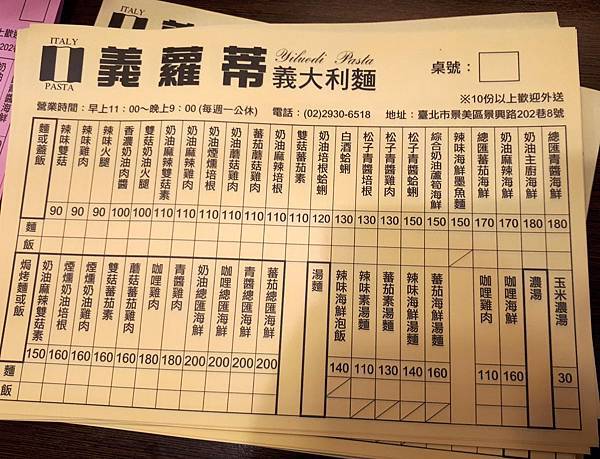 ITALY
PASTA
義蘿蒂
Yiluodi Pasta
義大利麵
桌號：
※10份以上歡迎外送
營業時間：早上11：00～晚上9：00 (每週一公休) 電話：(02)2930-6518 地址：臺北市景美區景興路202巷8號
麵或蓋飯
辣味雙菇 90
辣味雞肉 90
辣味火腿 90
香濃奶油肉醬 100
雙菇奶油火腿 100
奶油麻辣雙菇素 110
奶油麻辣雞肉 110
奶油煙燻培根 110
奶油蘑菇雞肉 110
蕃茄蘑菇雞肉 110
奶油麻辣培根 110
雙菇蕃茄素 110
奶油培根蛤蜊 120
白酒蛤蜊 130
松子青醬培根 130
松子青醬雞肉 130
松子青醬蛤蜊 150
綜合奶油蘆筍海鮮 150
辣味海鮮墨魚麵 150
總匯蕃茄海鮮 170
奶油麻辣海鮮 170
奶油主廚海鮮 180
總匯青醬海鮮 180
麵
飯
焗烤麵或飯
奶油麻辣雙菇素 150
煙燻奶油培根 160
煙燻奶油雞肉 160
雙菇蕃茄素 160
蘑菇蕃茄雞肉 160
咖哩雞肉 180
青醬雞肉 180
奶油總匯海鮮 200
咖哩總匯海鮮 200
青醬總匯海鮮 200
蕃茄總匯海鮮 200
湯麵
辣味海鮮泡飯 140
辣味素湯麵 110
蕃茄素湯麵 130
辣味海鮮湯麵 140
蕃茄海鮮湯麵 160
咖哩雞肉 110
咖哩海鮮 160
濃湯
玉米濃湯 30
麵
飯